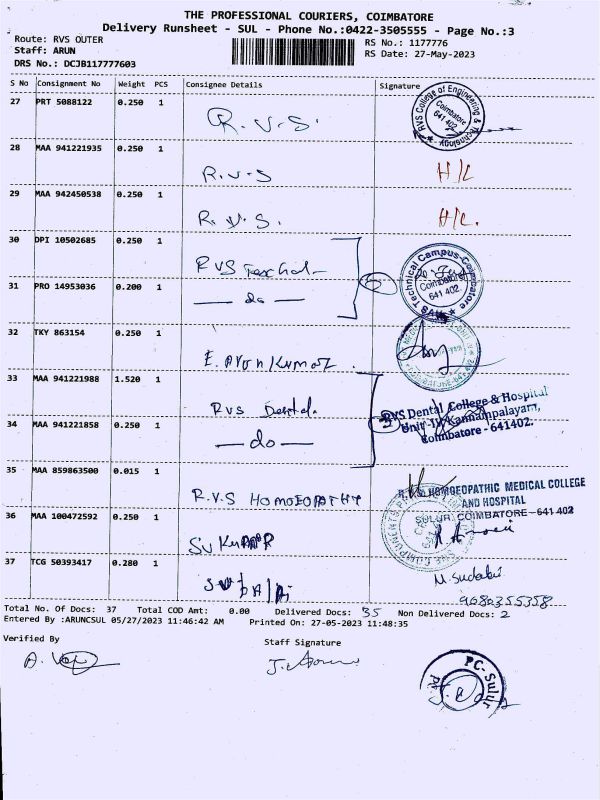 THE PROFESSIONAL COURIERS, COIMBATORE
Delivery Runsheet - SUL - Phone No.:0422-3505555 - Page No.:3
Route: RVS OUTER
RS No.: 1177776
Staff: ARUN
RS Date: 27-May-2023
DRS No.: DCJB117777603
S No Consignment No Weight PCS Consignee Details Signature
27 PRT 5088122 0.250 1 R.V.S. RVS College of Engineering & Technology Coimbatore 641 402
28 MAA 941221935 0.250 1 R.V.S H/C
29 MAA 942450538 0.250 1 R.V.S. H/C.
30 DPI 10502685 0.250 1 RVS RVS Technical Campus-Coimbatore Coimbatore 641 402
31 PRO 14953036 0.200 1 — do —
32 TKY 863154 0.250 1 E. Arun Kumar
33 MAA 941221988 1.520 1 RVS Dental RVS Dental College & Hospital
34 MAA 941221858 0.250 1 — do — Unit-IV, Kannampalayam,
Coimbatore - 641402.
35 MAA 859863500 0.015 1 R.V.S HOMOEOPATHY R.V.S. HOMOEOPATHIC MEDICAL COLLEGE
AND HOSPITAL
SULUR, COIMBATORE-641 402
36 MAA 100472592 0.250 1 SUKUMAR
37 TCG 50393417 0.280 1 M. Sudabi
9080355358
Total No. Of Docs: 37 Total COD Amt: 0.00 Delivered Docs: 35 Non Delivered Docs: 2
Entered By :ARUNCSUL 05/27/2023 11:46:42 AM Printed On: 27-05-2023 11:48:35
Verified By Staff Signature
PC-Sulur